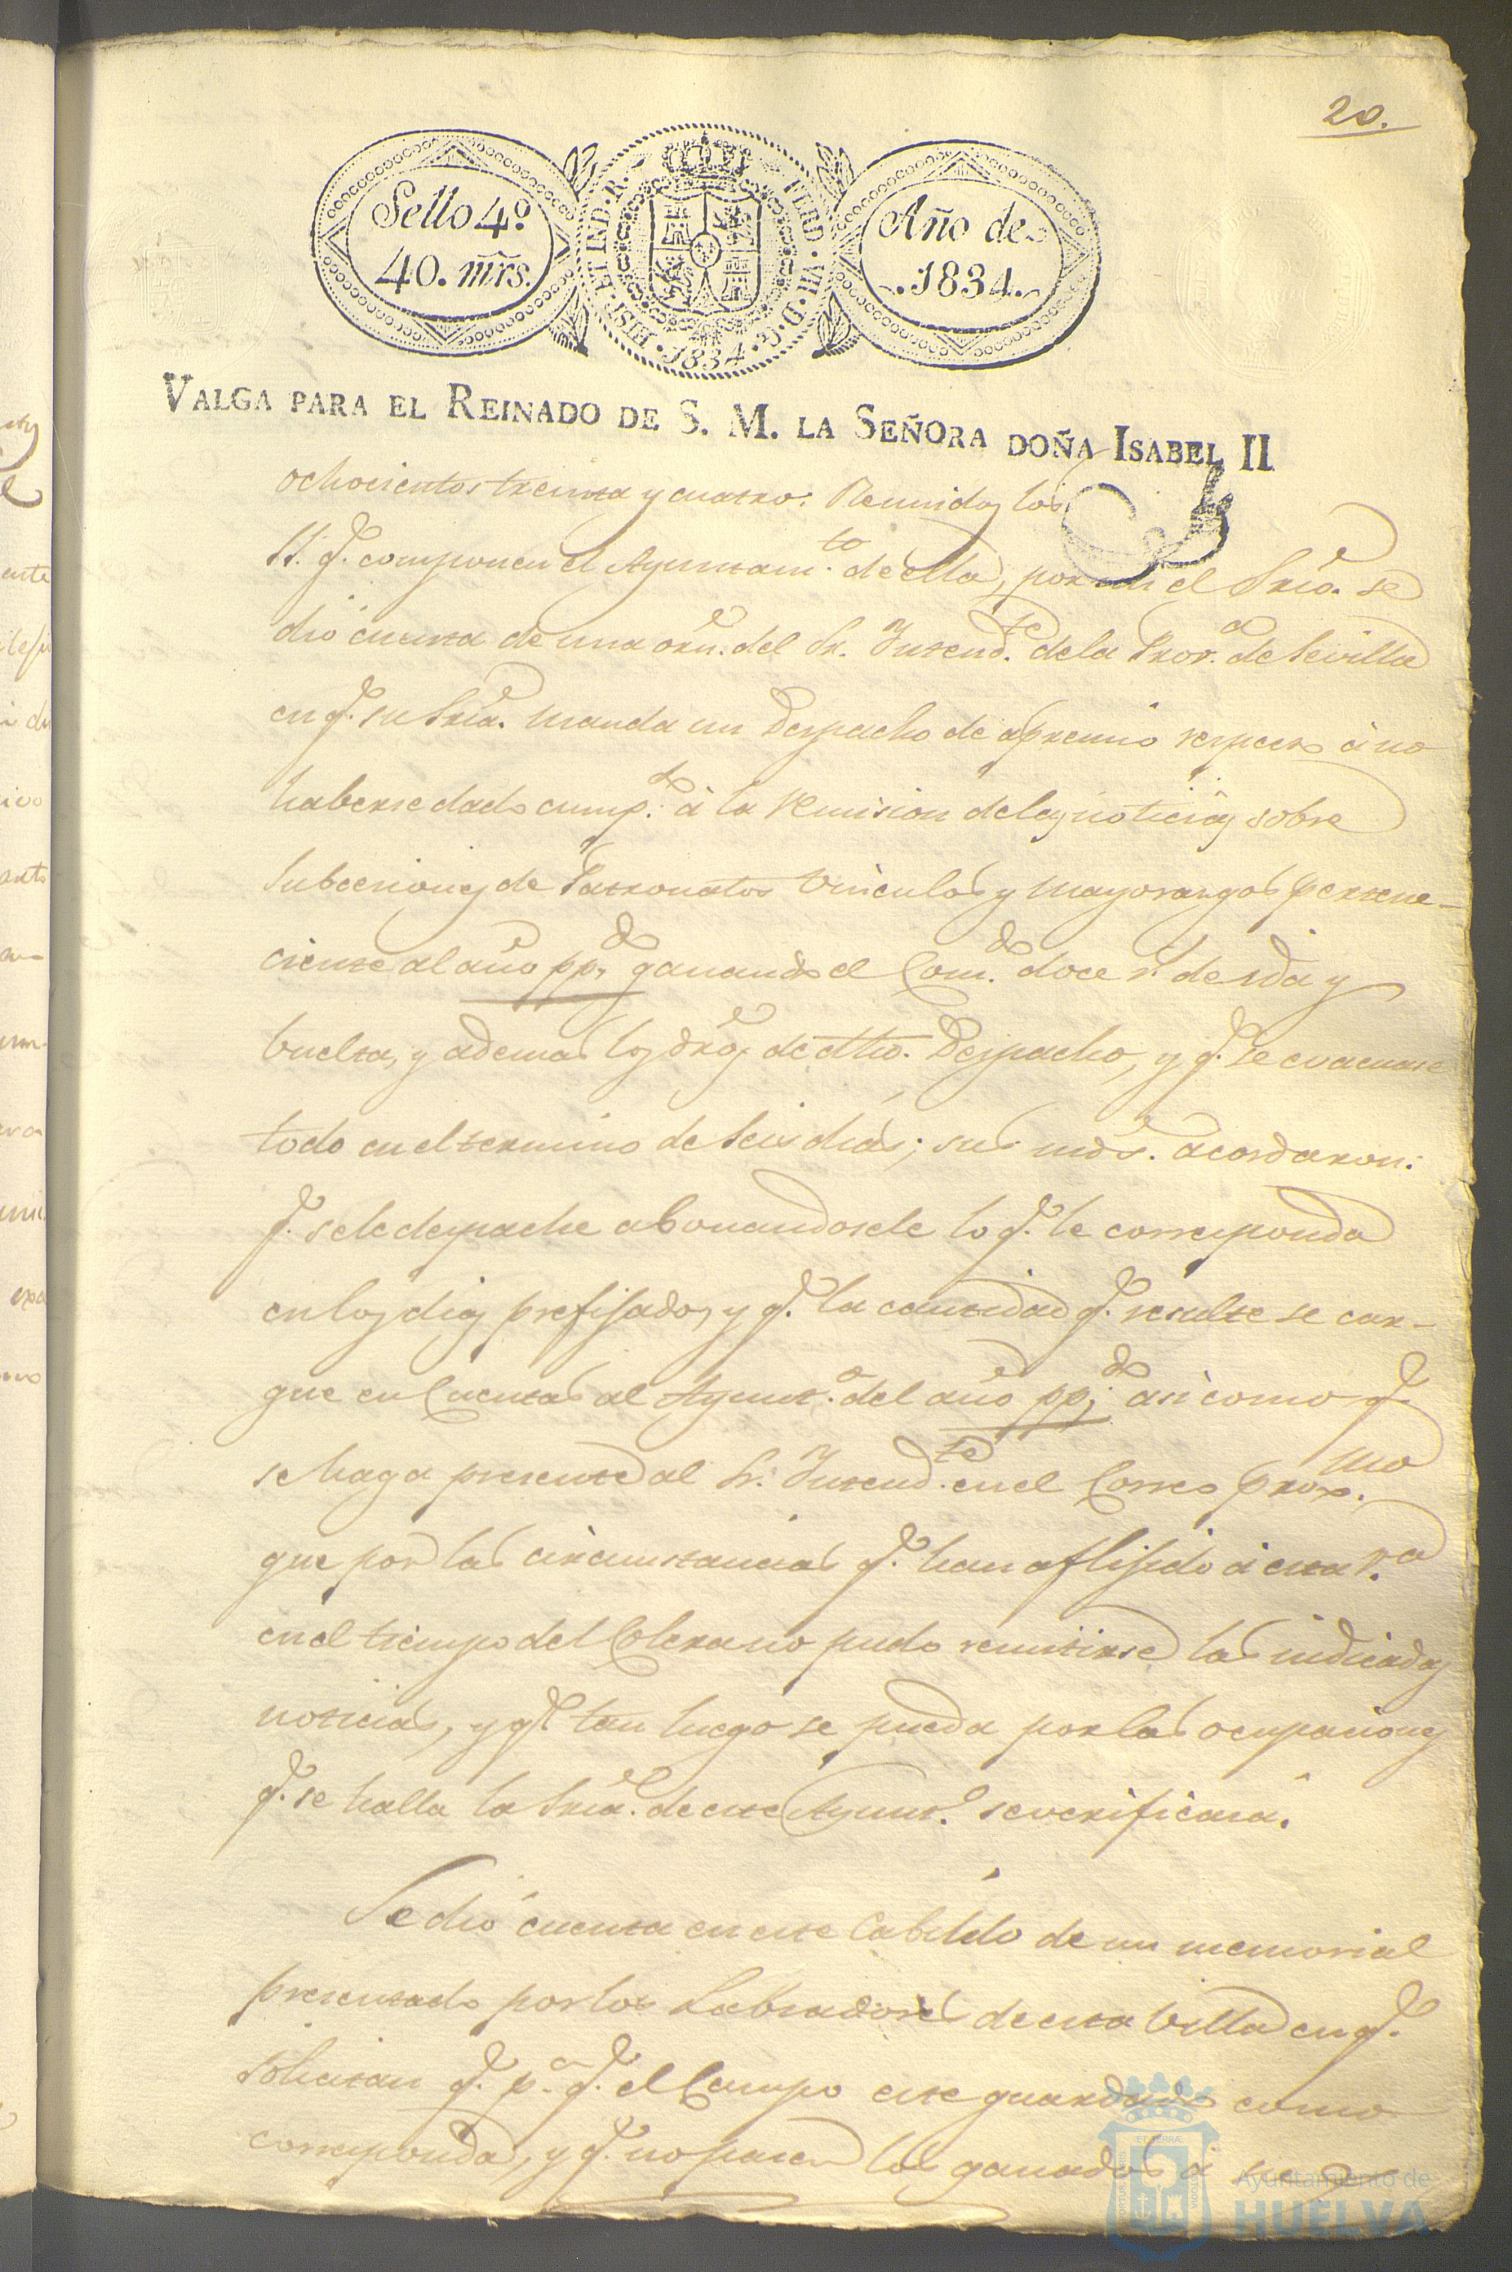 20.
Sello 4º
40. mrs.
HISP. ET IND. R. FERD. VII. D. G. 1834
Año de
1834.
VALGA PARA EL REINADO DE S. M. LA SEÑORA DOÑA ISABEL II
ochocientos treinta y cuatro: Reunidos los
SS. q.e componen el Ayuntam.to de ella, por mi el Srio. se
dió cuenta de una orn. del Sr. Intend.te de la Prov.a de Sevilla
en q.e su Sria. manda un Despacho de apremio respecto á no
haberse dado cump.do á la remision de las noticias sobre
Subcesiones de Patronatos Vinculos y Mayorasgos pertene-
ciente al año pp.do ganando el Com.do doce r.s de ida y
buelta, y ademas los dros. de dho. Despacho, y q.e se evacuase
todo en el termino de seis dias; sus mds. acordaron:
q.e se le despache abonandosele lo q.e le corresponda
en los dias prefijados, y q.e la cantidad q.e resulte se car-
gue en Cuentas al Ayunt.o del año pp.do asi como q.e
se haga presente al Sr. Intend.te en el Correo prox.mo
que por las circunstancias q.e han aflijido á esta v.a
en el tiempo del Colera no pudo remitirse las indicadas
noticias, y q.e tan luego se pueda por las ocupaciones
q.e se halla la Sria. de este Ayunt.o se verificará.
Se dió cuenta en este Cabildo de un memorial
presentado por los Labradores de esta Villa en q.e
solicitan q.e p.a q.e el Campo este guardado como
corresponda, y q.e no pasen los ganados á
Ayuntamiento de
HUELVA